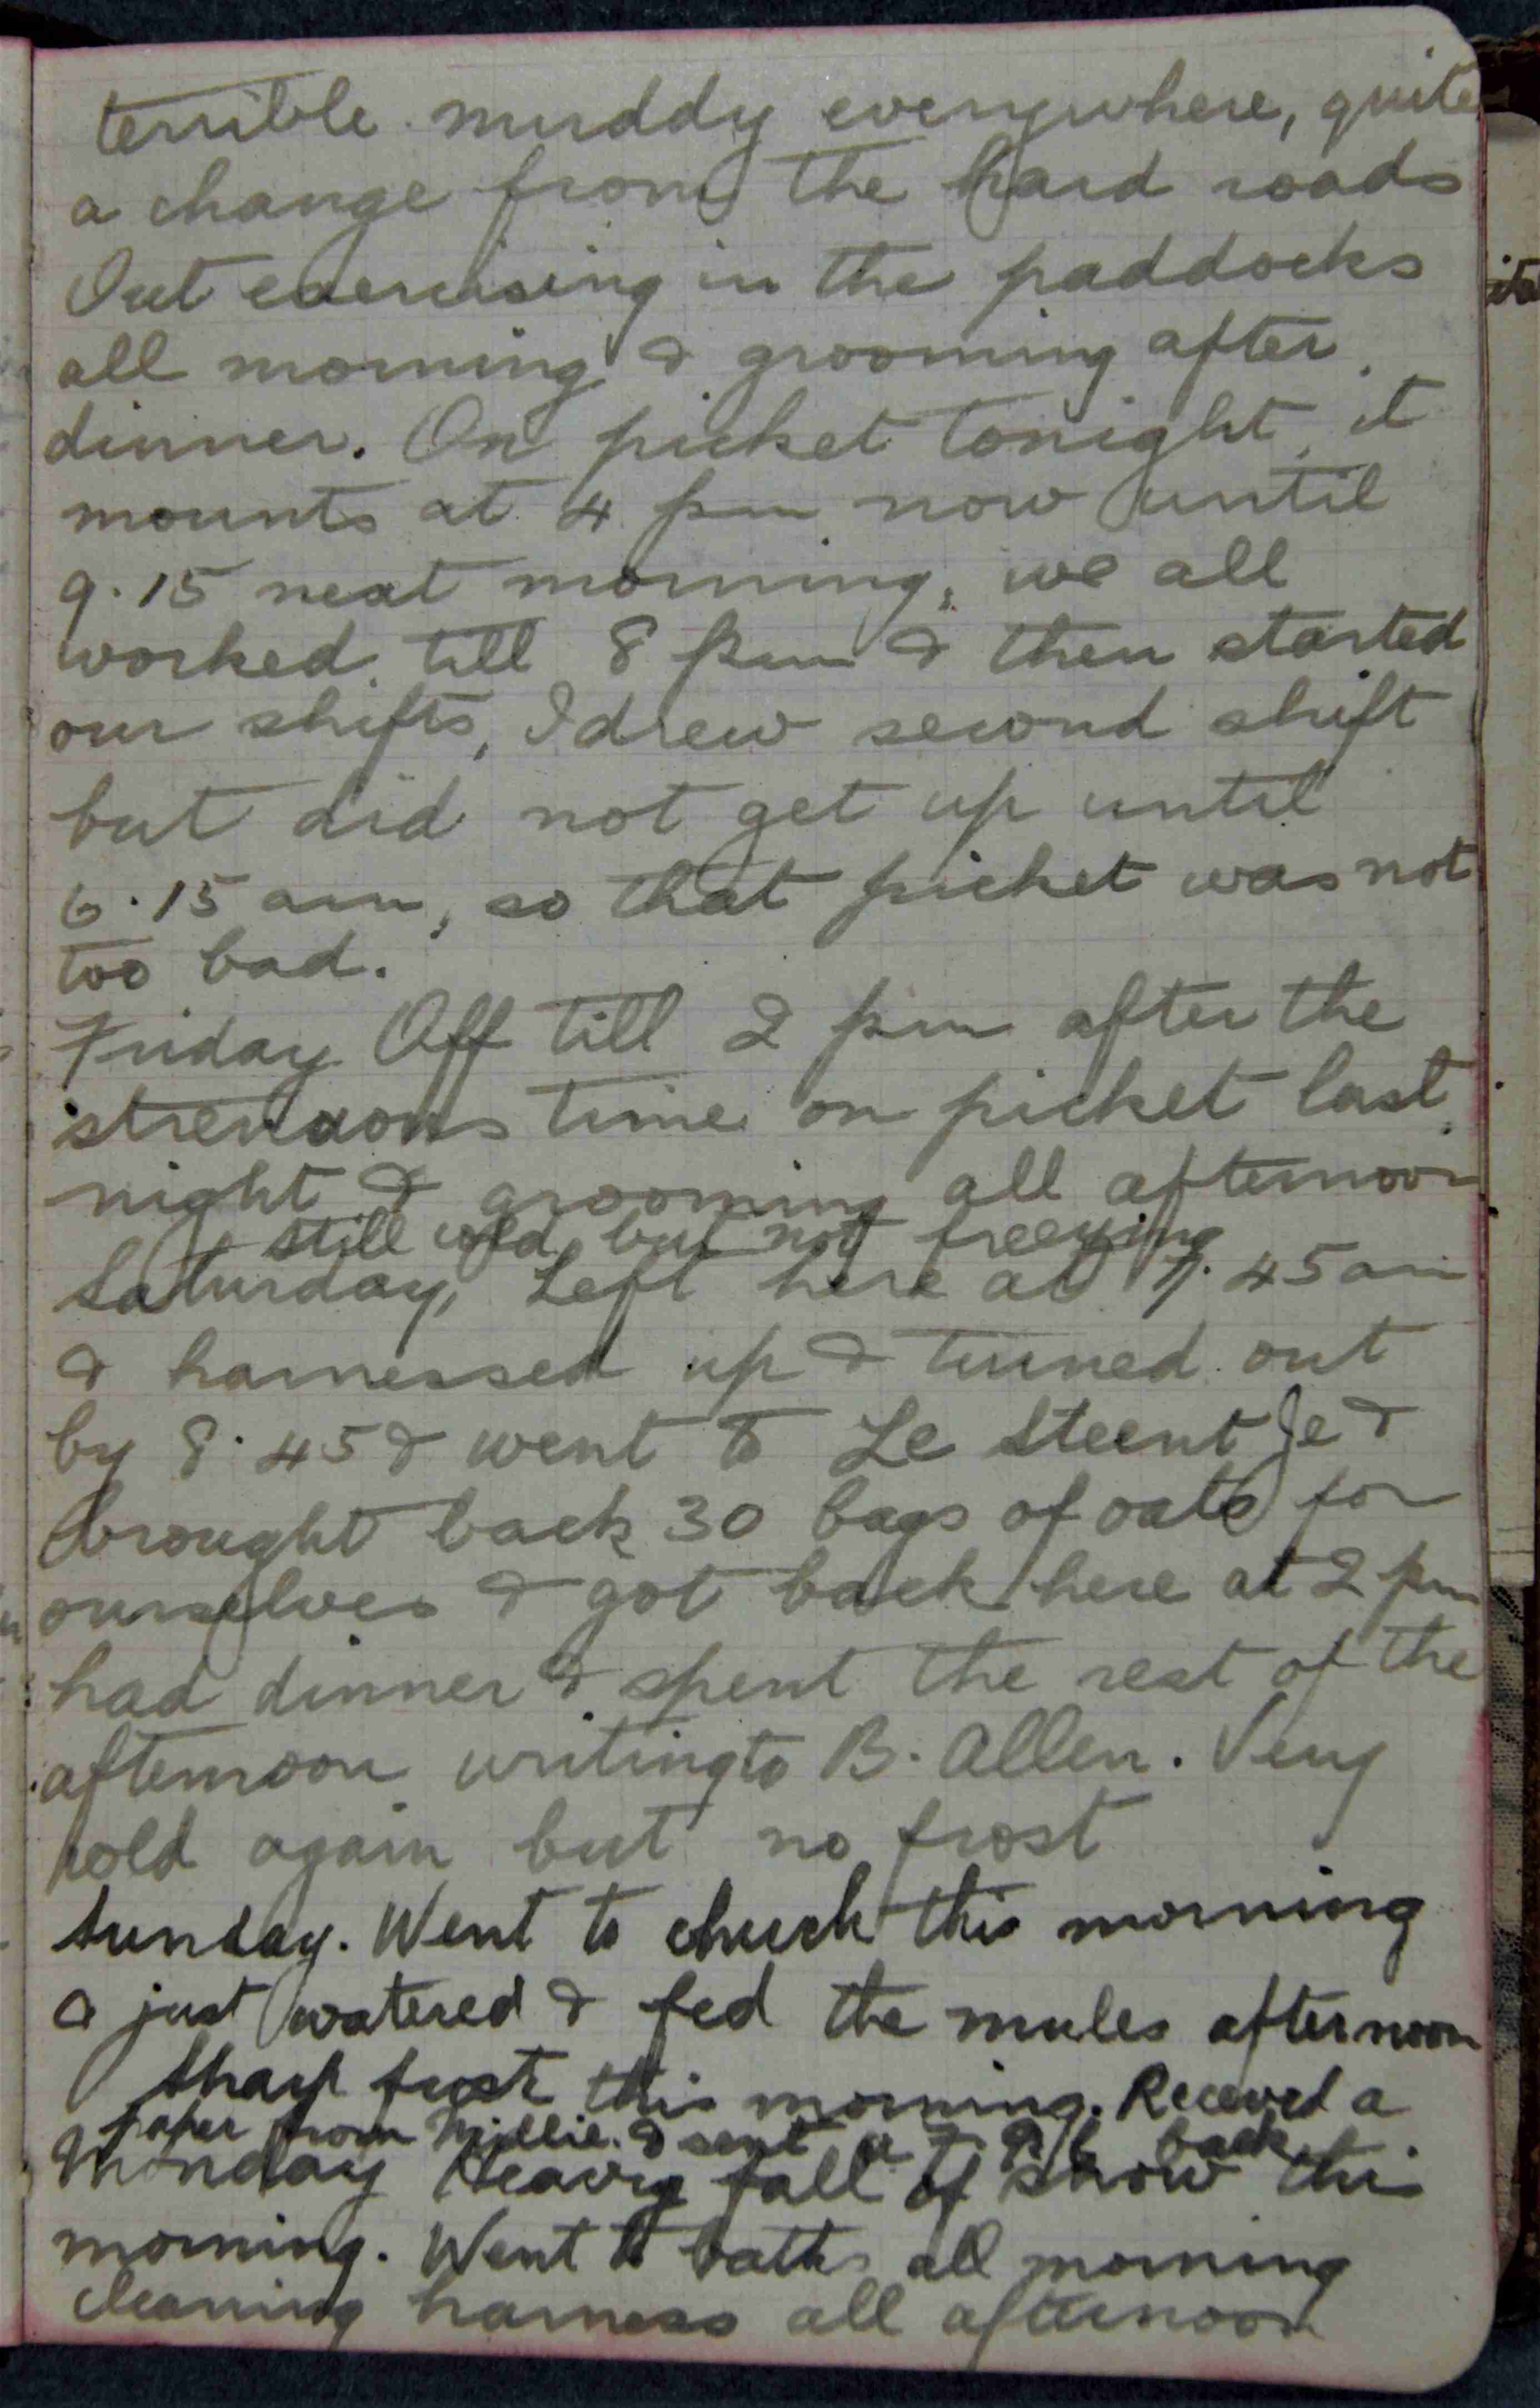 terrible muddy everywhere, quite
a change from the hard roads
Out exercising in the paddocks
all morning & grooming after
dinner. On picket tonight, it
mounts at 4 pm now until
9.15 next morning, we all
worked till 8 pm & then started
our shifts, I drew second shift
but did not get up until
6.15 am, so that picket was not
too bad.
Friday Off till 2 pm after the
strenuous time on picket last
night & grooming all afternoon
still cold, but not freezing
Saturday, Left here at 7.45 am
& harnessed up & turned out
by 8.45 & went to Le Steent Je &
brought back 30 bags of oats for
ourselves & got back here at 2 pm
had dinner & spent the rest of the
afternoon writing to B. Allen. Very
cold again but no frost
Sunday. Went to church this morning
& just watered & fed the mules afternoon
Sharp frost this morning. Received a
paper from Millie & sent a back
Monday Heavy fall of snow this
morning. Went to baths all morning
cleaning harness all afternoon